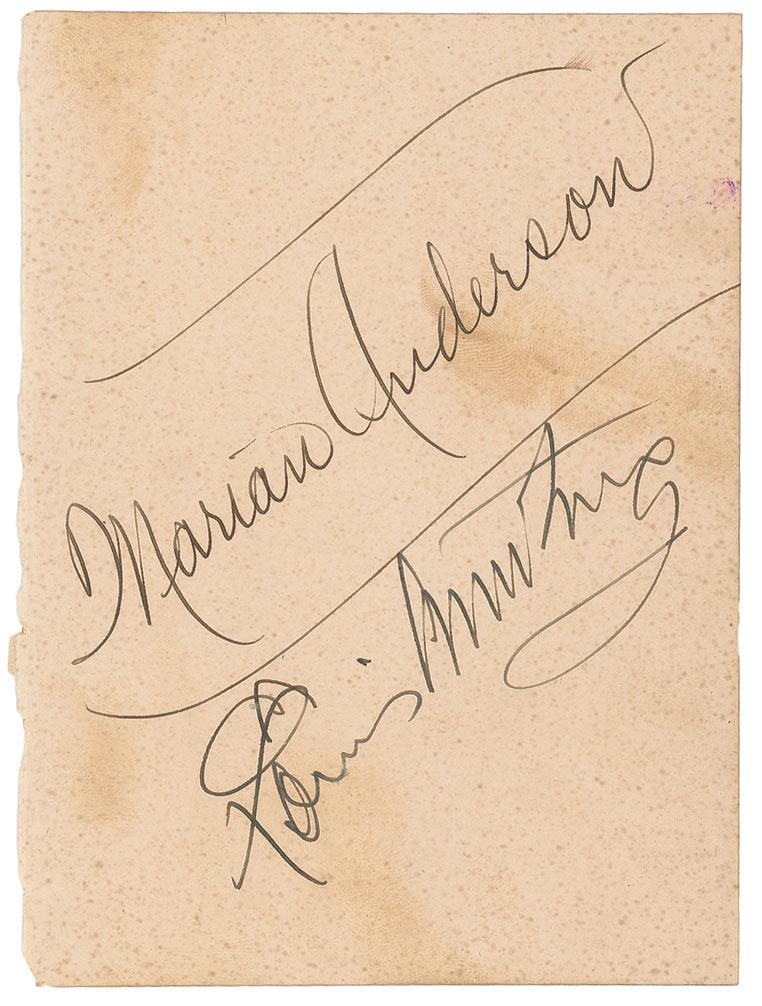 Marian Anderson
Louis Armstrong